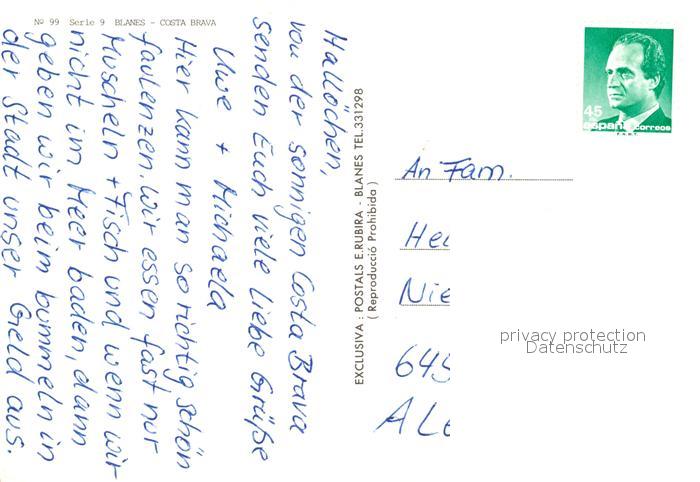 Nº 99 Serie 9 BLANES – COSTA BRAVA
Hallöchen,
von der sonnigen Costa Brava
senden Euch viele liebe Grüße
Uwe + Michaela
Hier kann man so richtig schön
faulenzen. Wir essen fast nur
Muscheln + Fisch und wenn wir
nicht im Meer baden, dann
geben wir beim bummeln in
der Stadt unser Geld aus.
EXCLUSIVA : POSTALS E.RUBIRA - BLANES TEL.331298
( Reproducció Prohibida )
45
españa correos
An Fam.
Hei
Nie
645
ALe
privacy protection
Datenschutz